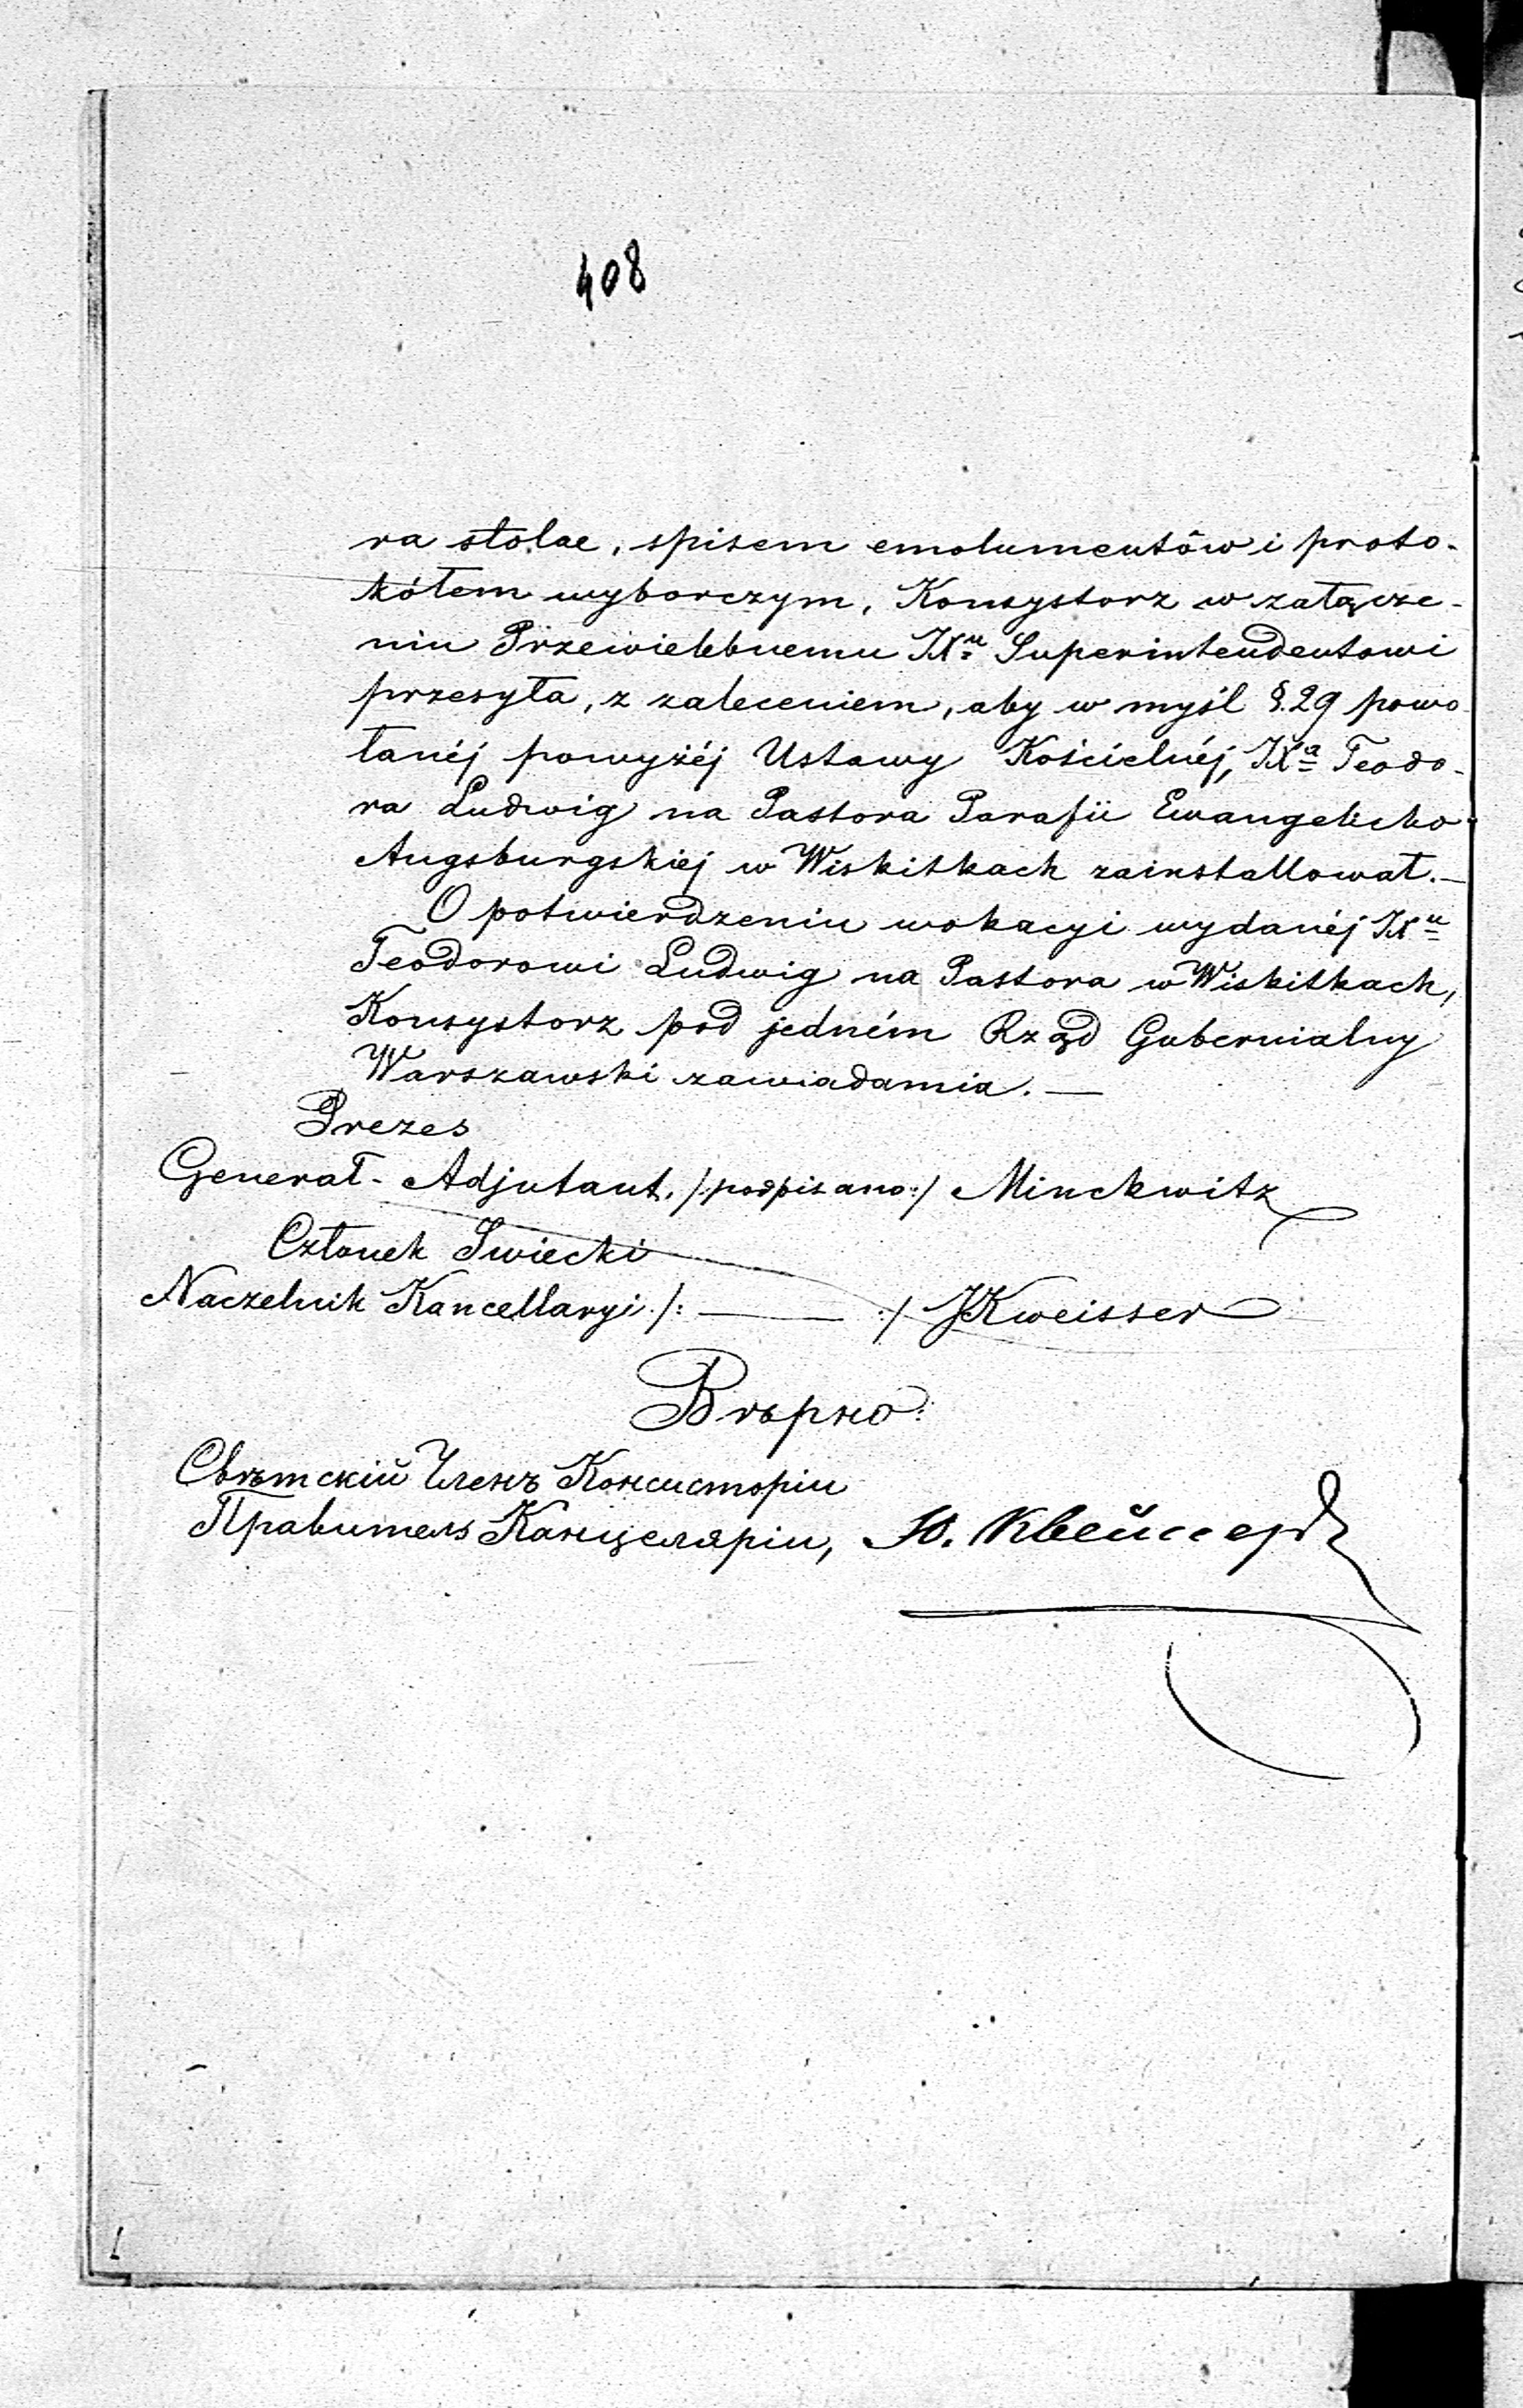 408
ra stolae, spisem emolumentów i proto-
kółem wyborczym, Konsystorz w załącze-
niu Przewielebnemu JXu Superintendentowi
przesyła, z zaleceniem, aby w myśl §. 29 powo
łanéj powyżéj Ustawy Kościelnéj, JXa Teodo-
ra Ludwig na Pastora Parafii Ewangelicko
Augsburgskiej w Wiskitkach zainstallował. —
O potwierdzeniu wokacyi wydanéj JXu
Teodorowi Ludwig na Pastora w Wiskitkach,
Konsystorz pod jedném Rząd Gubernialny
Warszawski zawiadamia. —
Prezes
Generał-Adjutant, /:podpisano:/ Minckwitz
Członek Swiecki
Naczelnik Kancellaryi /: — :/ JKweisser
Вѣрно:
Свѣтскій Членъ Консисторіи
Правитель Канцеляріи, Ю. Квейссеръ